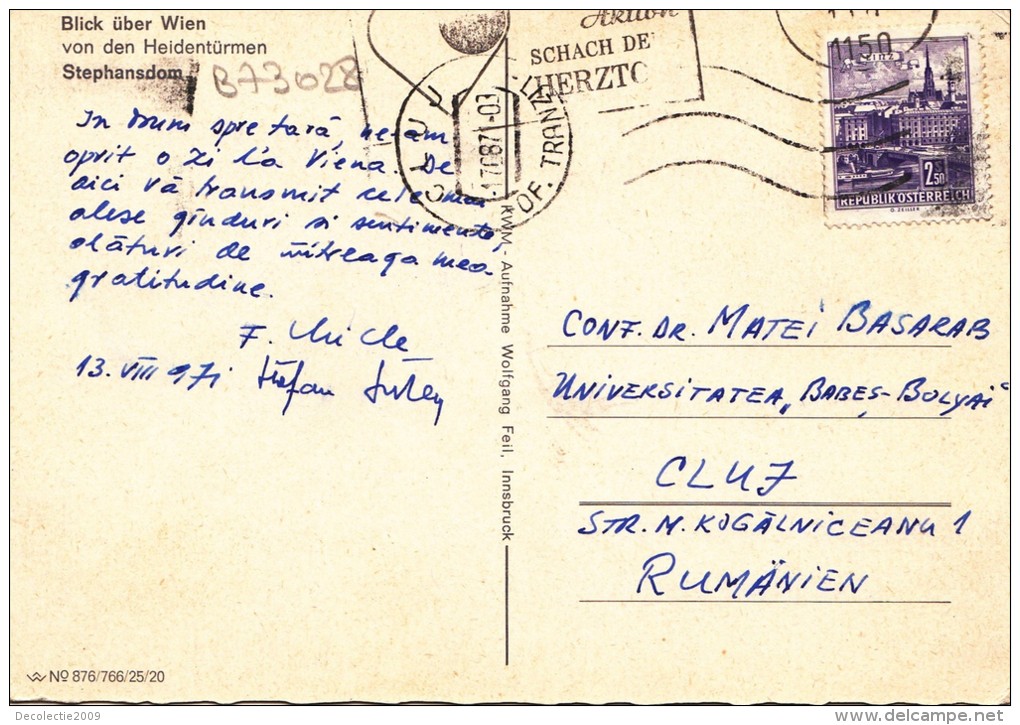 Blick über Wien
von den Heidentürmen
Stephansdom
B73028
In drum spre țară, ne-am
oprit o zi la Viena. De
aici vă transmit cele mai
alese gînduri și sentimente,
alături de întreaga mea
gratitudine.
13.VIII 971 Ștefan
KWM - Aufnahme Wolfgang Feil, Innsbruck
CLUJ
OF. TRANZIT
Aktion
SCHACH DE
HERZTO
1150
LINZ
2.50
REPUBLIK ÖSTERREICH
G. ZEILLER
CONF. DR. MATEI BASARAB
UNIVERSITATEA „BABEȘ-BOLYAI“
CLUJ
STR. M. KOGĂLNICEANU 1
RUMÄNIEN
Nº 876/766/25/20
Decolectie2009
www.delcampe.net